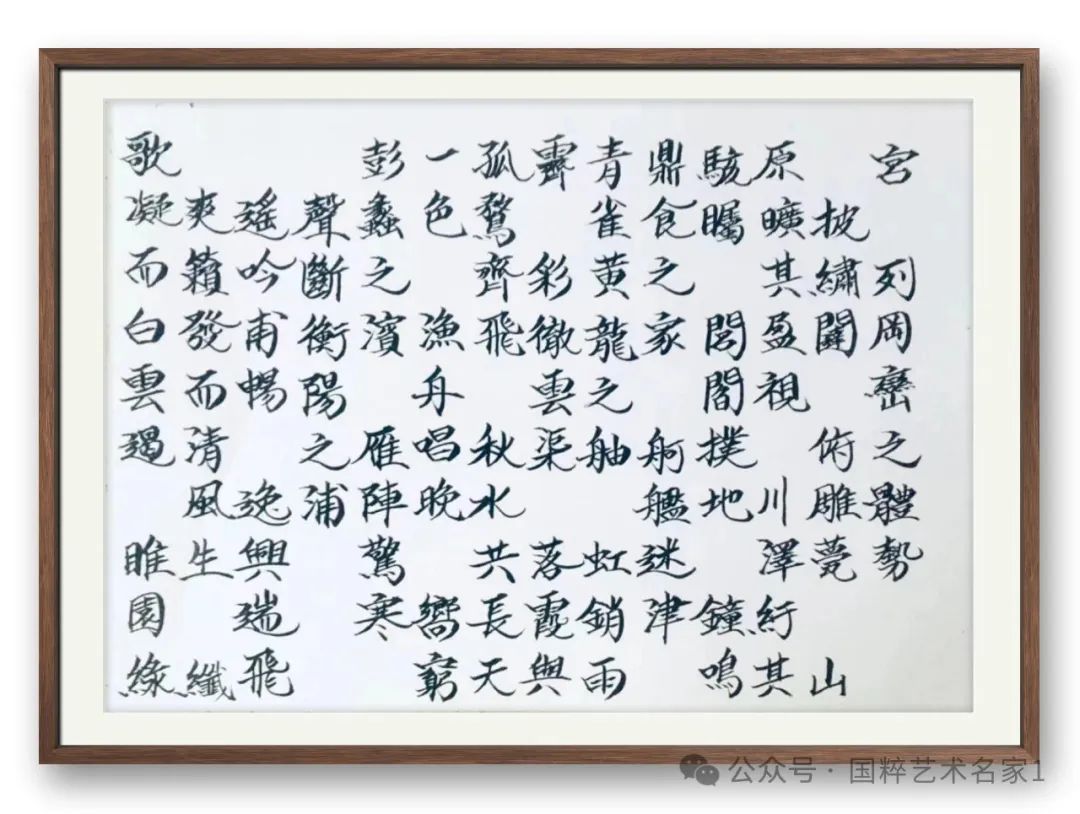 宮 列岡巒之體勢
披繡闥 俯雕甍 山
原曠其盈視 川澤紆其
駭矚 閭閻撲地 鐘鳴
鼎食之家 舸艦迷津
青雀黄龍之舳 虹銷雨
霽 彩徹雲渠 落霞與
孤鶩齊飛 秋水共長天
一色 漁舟唱晚 嚮窮
彭蠡之濱 雁陣驚寒
聲斷衡陽之浦
遙吟甫暢 逸興遄飛
爽籟發而清風生 纖
歌凝而白雲遏 睢園緣
公众号 · 国粹艺术名家1